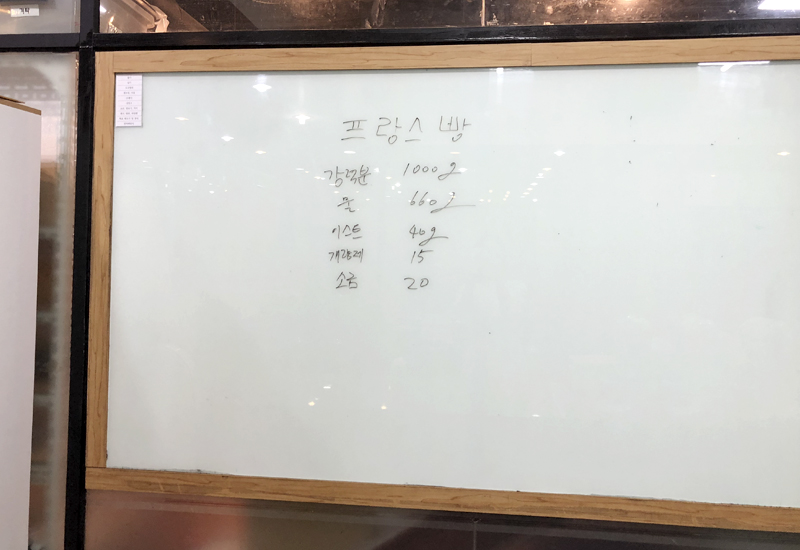 프랑스 빵
강력분 1000g
물 660g
이스트 40g
개량제 15
소금 20